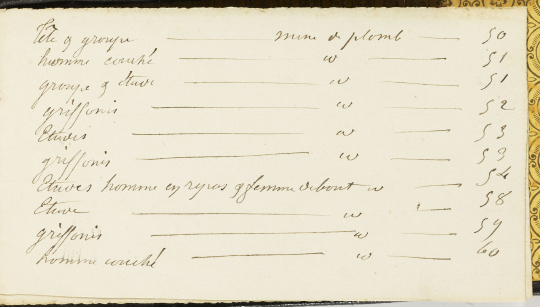 Tête & groupe — mine de plomb — 50
homme couché — " — 51
groupe & étude — " — 51
griffonis — " — 52
Etudes — " — 53
griffonis — " — 53
Etudes homme en repos & femme debout " — 54
Etude — " — 58
griffonis — " — 59
homme couché — " — 60